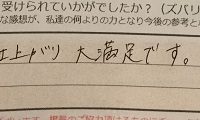 を受けられていかがでしたか？（ズバリ
な感想が、私達の何よりの力となり今後の参考と
仕上がり 大満足です。